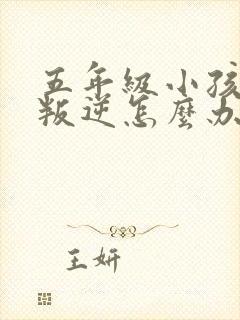 五年級小孩
叛逆怎麼办
王妍